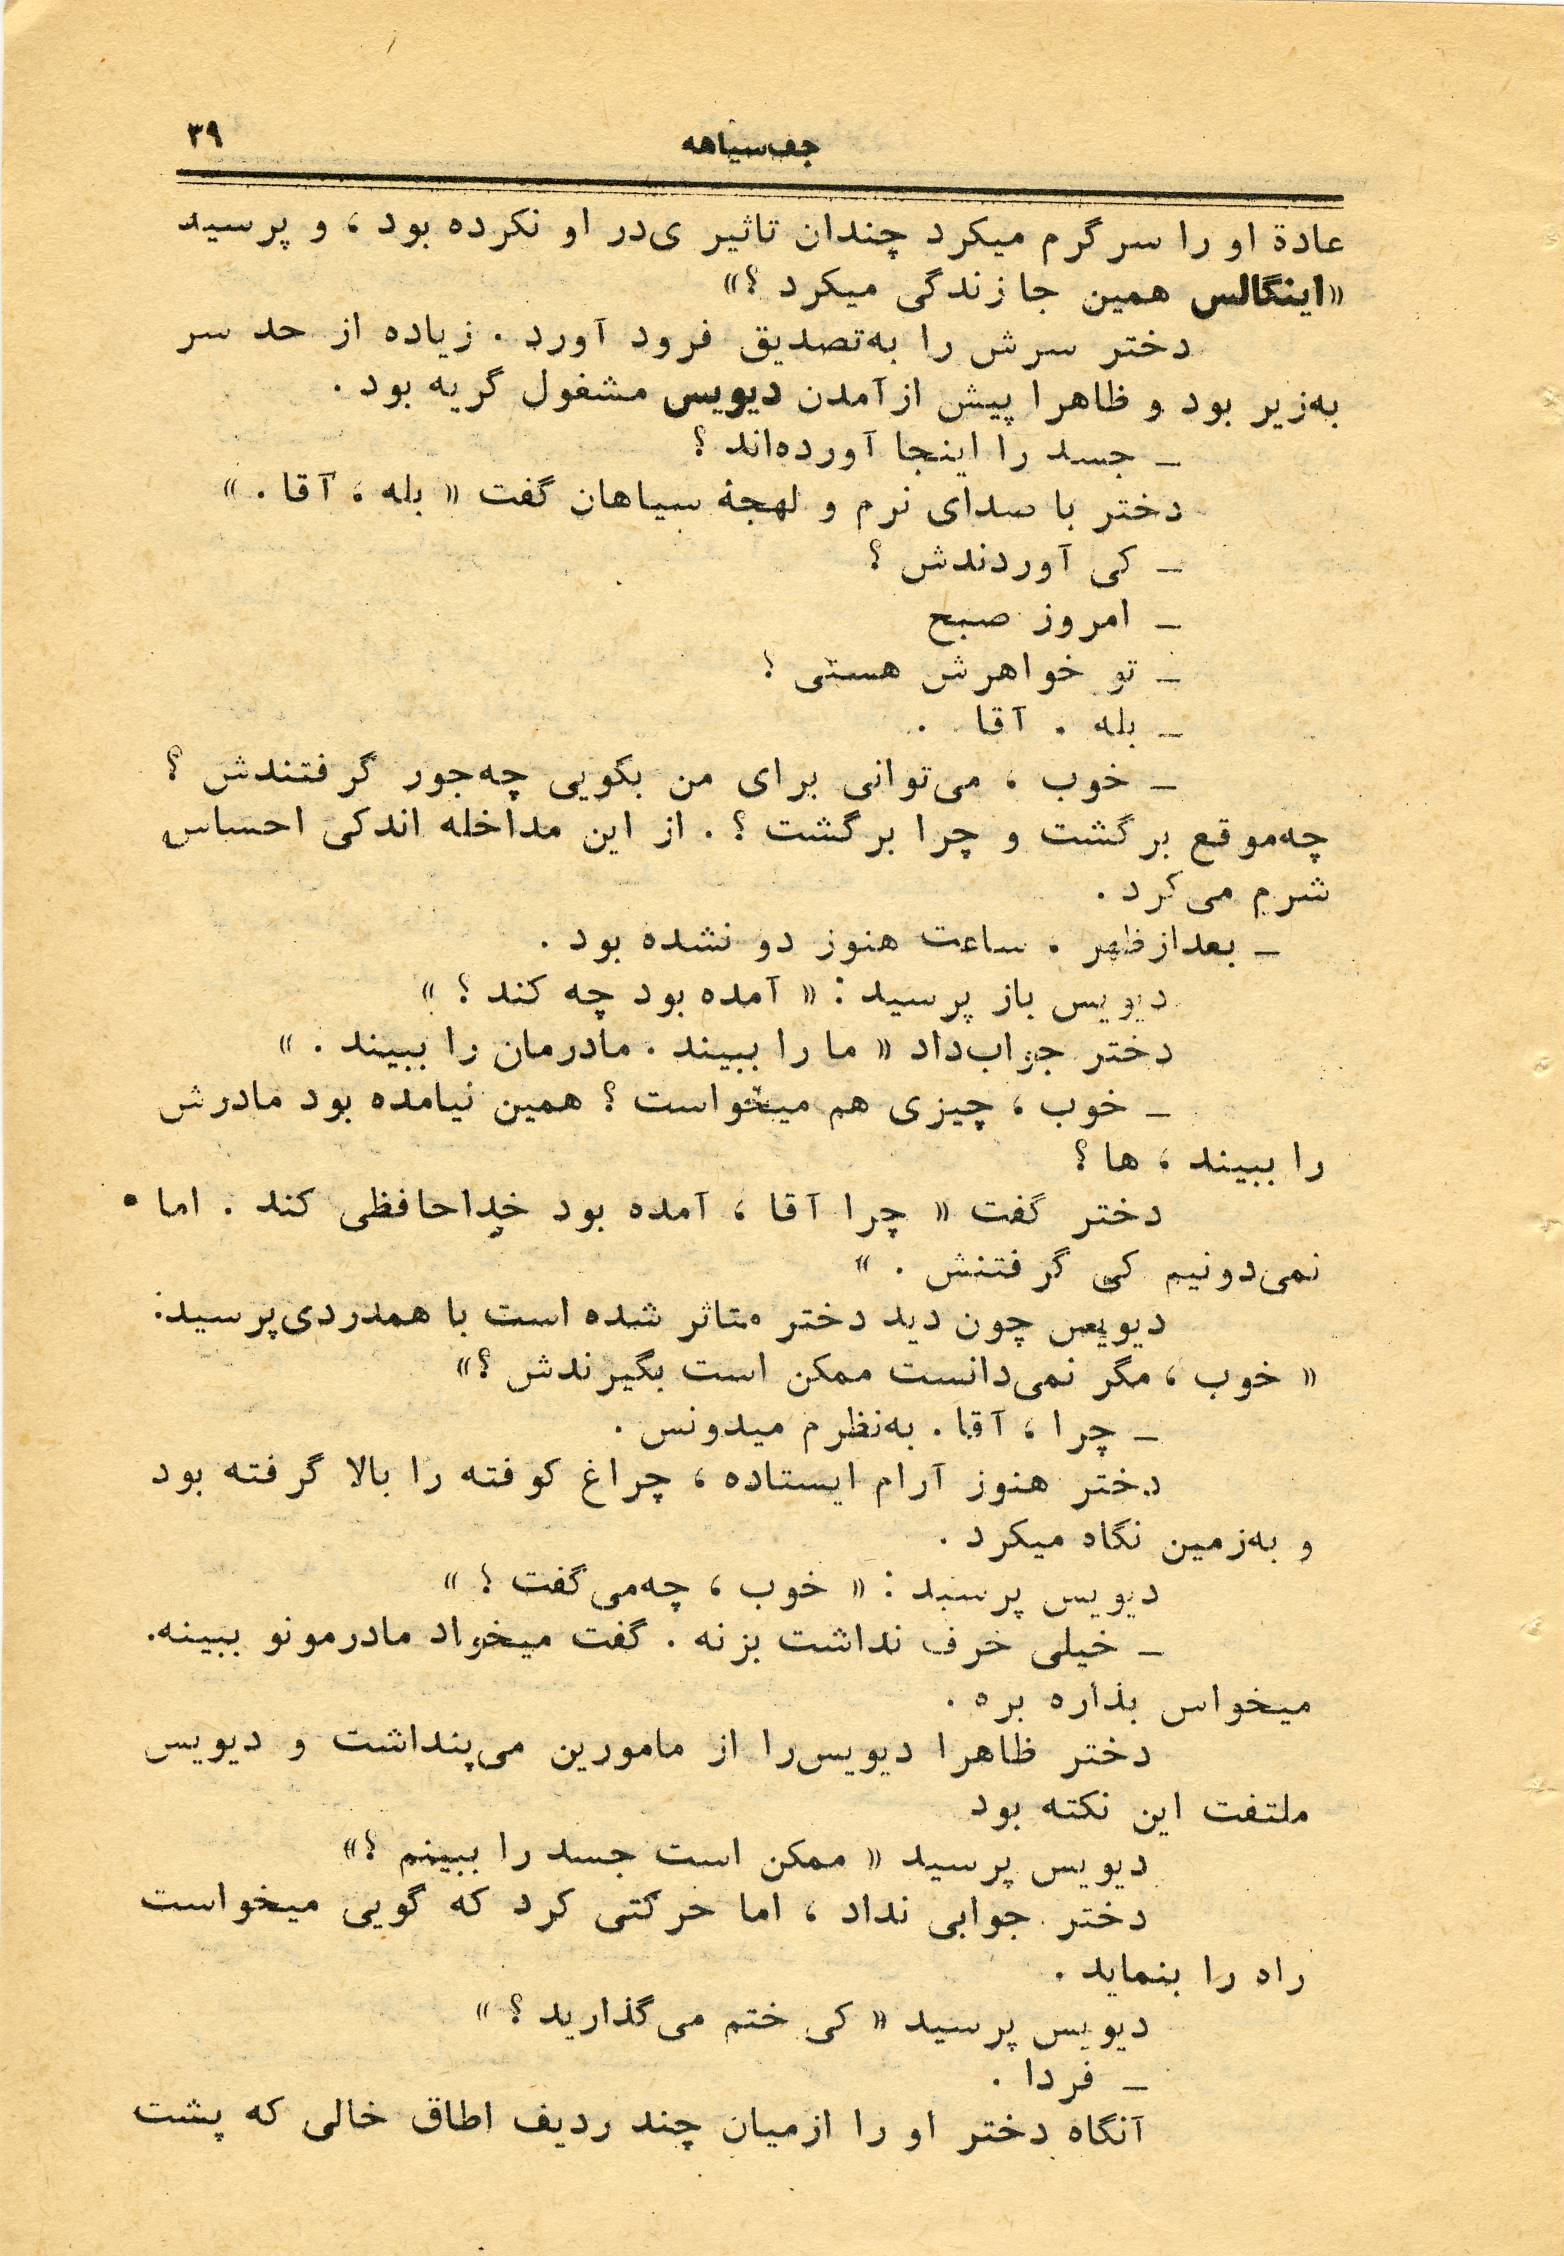 جف‌سیاهه
۳۹
عادة او را سرگرم میکرد چندان تاثیر ی‌در او نکرده بود ، و پرسید
«اینگالس همین جا زندگی میکرد ؟»
دختر سرش را به‌تصدیق فرود آورد . زیاده از حد سر
به‌زیر بود و ظاهرا پیش ازآمدن دیویس مشغول گریه بود .
ـ جسد را اینجا آورده‌اند ؟
دختر با صدای نرم و لهجهٔ سیاهان گفت « بله ، آقا . »
ـ کی آوردندش ؟
ـ امروز صبح
ـ تو خواهرش هستی ؟
ـ بله . آقا .
ـ خوب ، می‌توانی برای من بگویی چه‌جور گرفتندش ؟
چه‌موقع برگشت و چرا برگشت ؟ . از این مداخله اندکی احساس
شرم می‌کرد .
ـ بعدازظهر . ساعت هنوز دو نشده بود .
دیویس باز پرسید : « آمده بود چه کند ؟ »
دختر جواب‌داد « ما را ببیند . مادرمان را ببیند . »
ـ خوب ، چیزی هم میخواست ؟ همین نیامده بود مادرش
را ببیند ، ها ؟
دختر گفت « چرا آقا ، آمده بود خداحافظی کند . اما •
نمی‌دونیم کی گرفتنش . »
دیویس چون دید دختر متاثر شده است با همدردی‌پرسید:
« خوب ، مگر نمی‌دانست ممکن است بگیرندش ؟»
ـ چرا ، آقا . به‌نظرم میدونس .
دختر هنوز آرام ایستاده ، چراغ کوفته را بالا گرفته بود
و به‌زمین نگاه میکرد .
دیویس پرسید : « خوب ، چه‌می‌گفت ؟ »
ـ خیلی حرف نداشت بزنه . گفت میخواد مادرمونو ببینه.
میخواس بذاره بره .
دختر ظاهرا دیویس‌را از مامورین می‌پنداشت و دیویس
ملتفت این نکته بود
دیویس پرسید « ممکن است جسد را ببینم ؟»
دختر جوابی نداد ، اما حرکتی کرد که گویی میخواست
راه را بنماید .
دیویس پرسید « کی ختم می‌گذارید ؟ »
ـ فردا .
آنگاه دختر او را ازمیان چند ردیف اطاق خالی که پشت